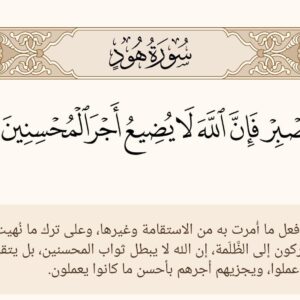 سُورَةُ هُودٍ
صْبِرْ فَإِنَّ ٱللَّهَ لَا يُضِيعُ أَجْرَ ٱلْمُحْسِنِينَ
فعل ما أمرت به من الاستقامة وغيرها، وعلى ترك ما نُهيت
ركون إلى الظَّلَمة، إن الله لا يبطل ثواب المحسنين، بل يتقـ
عملوا، ويجزيهم أجرهم بأحسن ما كانوا يعملون.